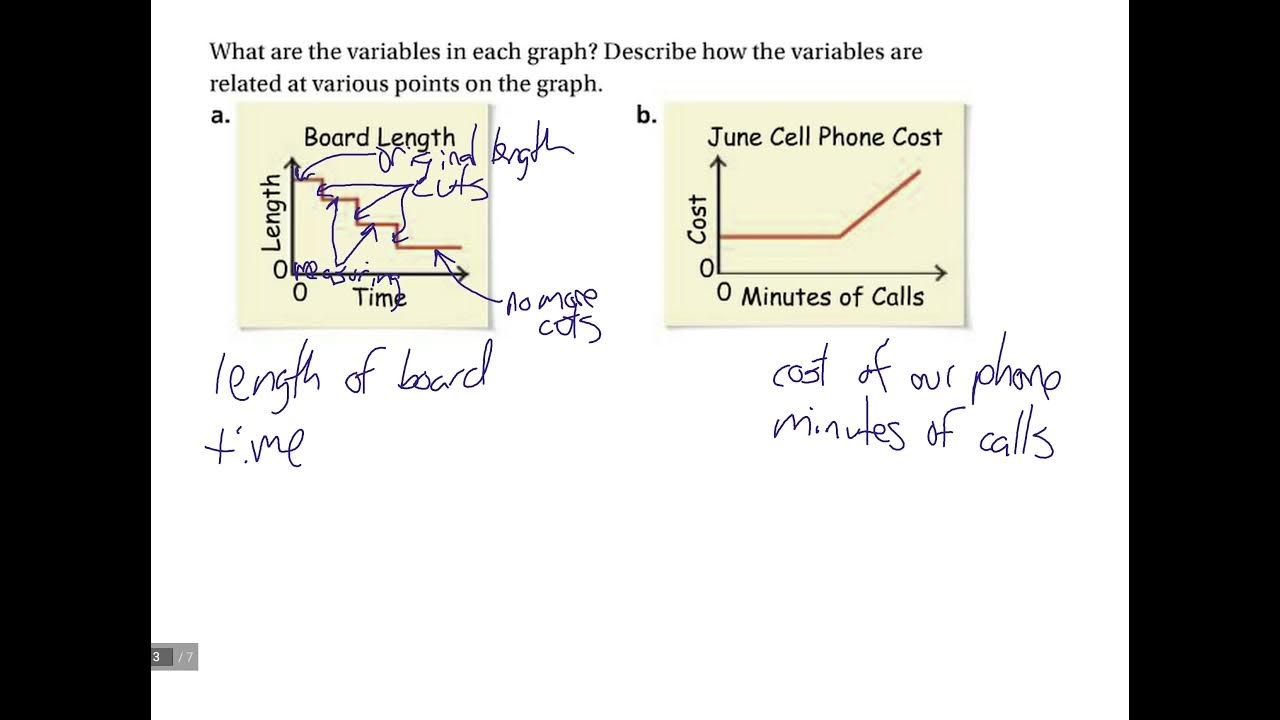 What are the variables in each graph? Describe how the variables are
related at various points on the graph.
a.
Board Length
original length
cuts
Length
measuring
0
0
Time
no more
cuts
length of board
time
b.
June Cell Phone Cost
Cost
0
0
Minutes of Calls
cost of our phone
minutes of calls
3 / 7